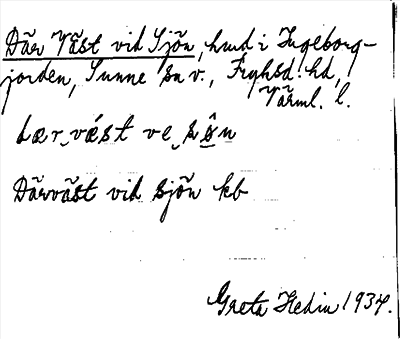 Där Väst vid Sjön, hmd i Ingeborg-
jorden, Sunne sn v., Fryksd. hd,
Värml. l.
dær väst ve sön
Därväst vid sjön kb
Greta Hedin 1934.